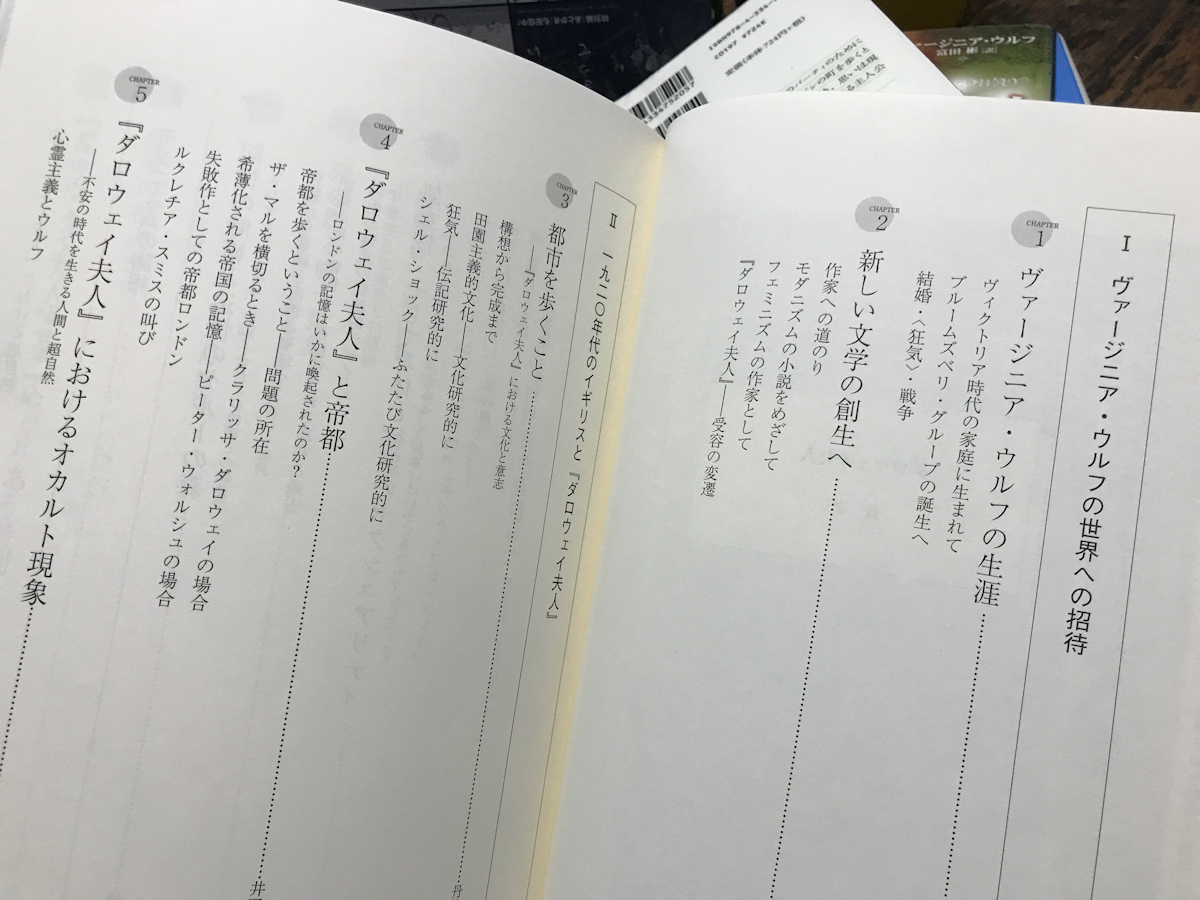 I ヴァージニア・ウルフの世界への招待
CHAPTER 1
ヴァージニア・ウルフの生涯
ヴィクトリア時代の家庭に生まれて
ブルームズベリ・グループの誕生へ
結婚・〈狂気〉・戦争
CHAPTER 2
新しい文学の創生へ
作家への道のり
モダニズムの小説をめざして
フェミニズムの作家として
『ダロウェイ夫人』——受容の変遷
II 一九二〇年代のイギリスと『ダロウェイ夫人』
CHAPTER 3
都市を歩くこと
——『ダロウェイ夫人』における文化と意志
構想から完成まで
田園主義的文化——文化研究的に
狂気——伝記研究的に
シェル・ショック——ふたたび文化研究的に
丹
CHAPTER 4
『ダロウェイ夫人』と帝都
——ロンドンの記憶はいかに喚起されたのか?
帝都を歩くということ——問題の所在
ザ・マルを横切るとき——クラリッサ・ダロウェイの場合
希薄化される帝国の記憶——ピーター・ウォルシュの場合
失敗作としての帝都ロンドン
ルクレチア・スミスの叫び
井
CHAPTER 5
『ダロウェイ夫人』におけるオカルト現象
——不安の時代を生きる人間と超自然
心霊主義とウルフ
ージニア・ウルフ
富田 彬[訳]
C0197
定価(本体724円+税)
のパーティのために
どの町を歩くと
思いは現
る主人公